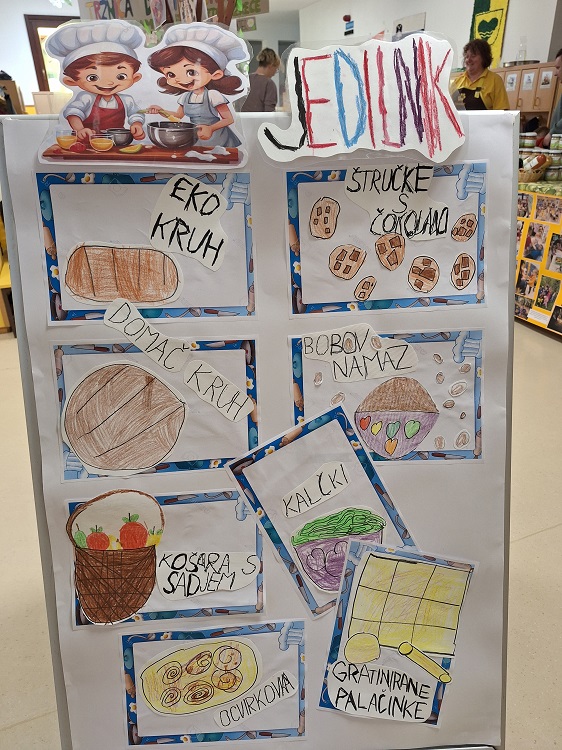 JEDILNIK
EKO
KRUH
ŠTRUČKE
S
ČOKOLADO
DOMAČ KRUH
BOBOV
NAMAZ
KALČKI
KOŠARA S
SADJEM
OCVIRKOVA
GRATINIRANE
PALAČINKE